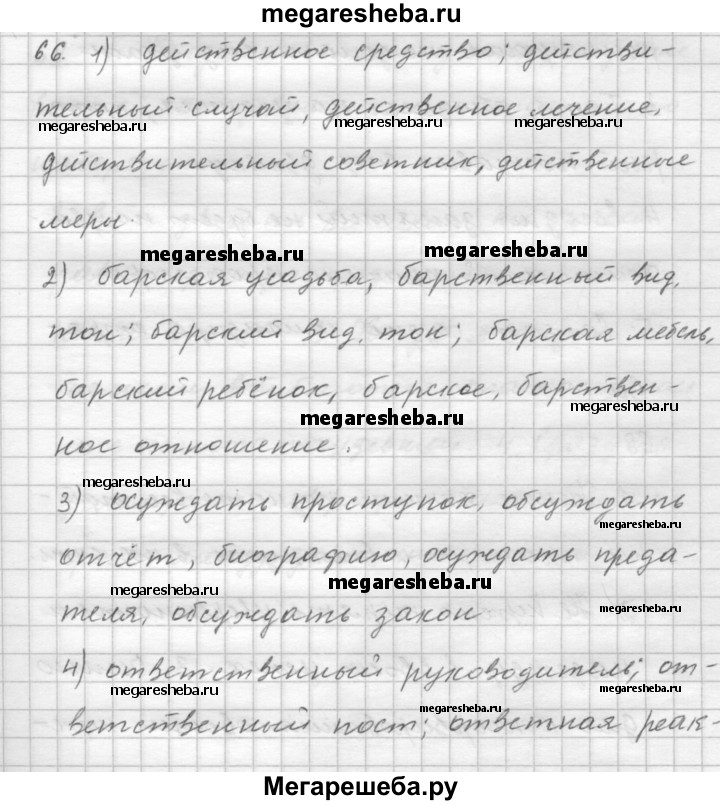 megaresheba.ru
66. 1) действенное средство; действи-
тельный случай, действенное лечение,
megaresheba.ru megaresheba.ru megaresheba.ru
действительный советник, действенные
меры.
megaresheba.ru megaresheba.ru
2) барская усадьба, барственный вид,
тон; барский вид, тон; барская мебель,
барский ребёнок, барское, барствен-
megaresheba.ru megaresheba.ru
ное отношение.
megaresheba.ru
3) осуждать проступок, обсуждать
megaresheba.ru
отчёт, биографию, осуждать преда-
megaresheba.ru megaresheba.ru megaresheba.ru
теля, обсуждать закон
4) ответственный руководитель; от-
megaresheba.ru megaresheba.ru
ветственный пост; ответная реак-
megaresheba.ru
Мегарешеба.ру